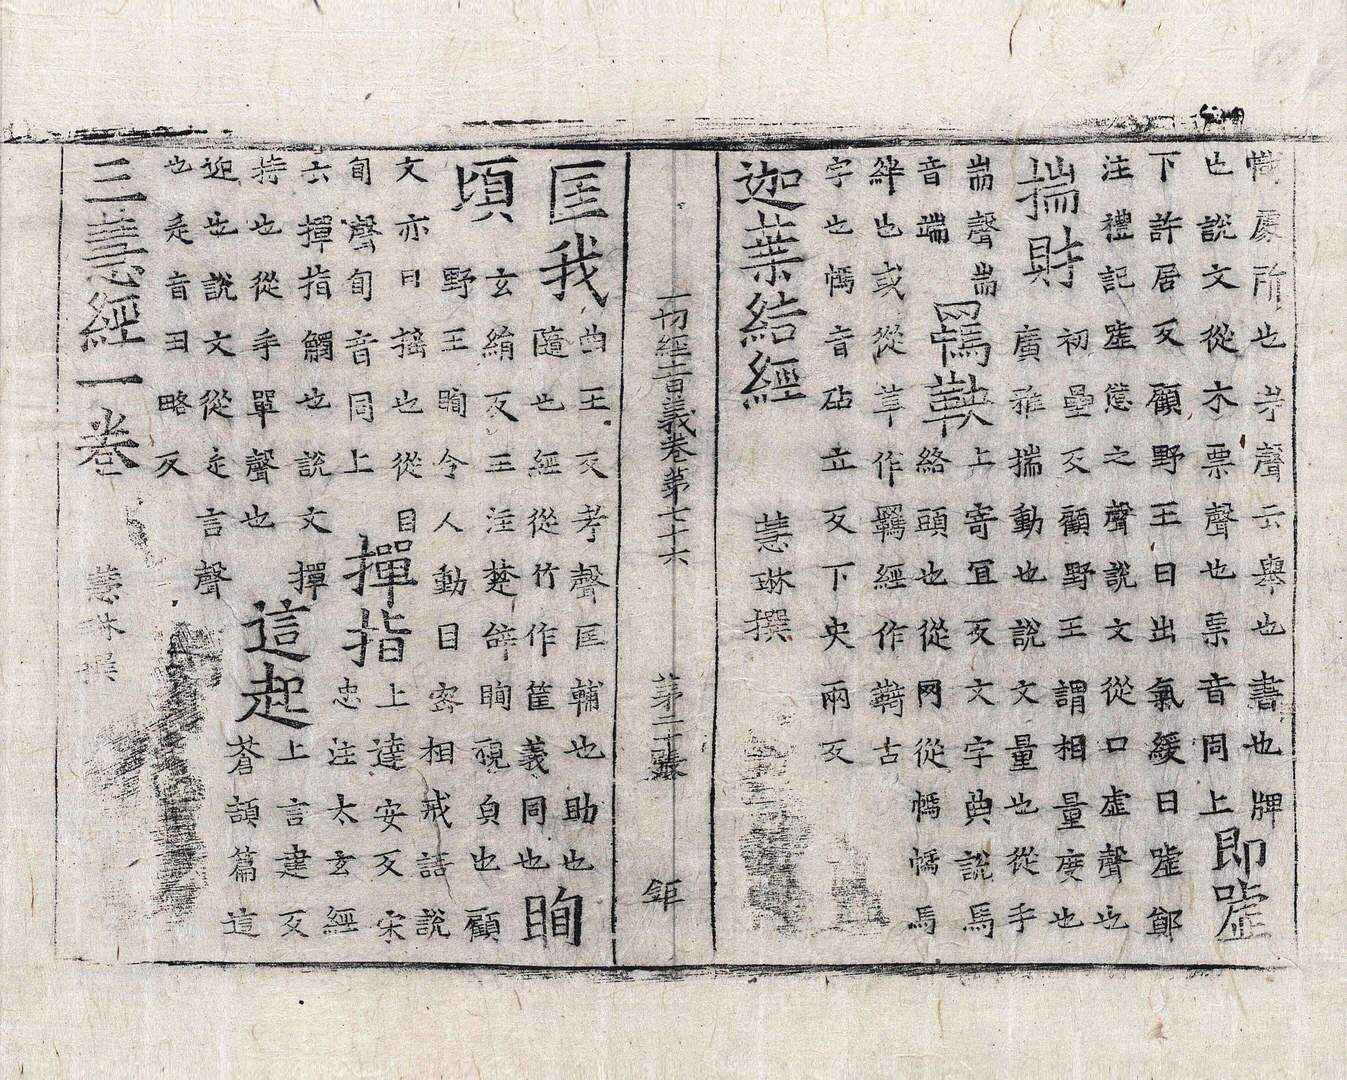 幟處所也考聲云舉也書也牌
也說文從木票聲也票音同上
即嘘
下許居反顧野王曰出氣緩曰嘘鄭
注禮記嘘憊之聲說文從口虛聲也
揣財
初壘反顧野王謂相量度也
廣雅揣動也說文量也從手
耑聲耑
音端
羈鞅
上寄冝反文字典說馬
絡頭也從网從馽馽馬
絆也或從革作羈經作䩭古
字也馽音砧立反下央兩反
迦葉結經 慧琳撰
一切經音義卷第七十六 第二十張 鉅
匡我
曲王反考聲匡輔也助也
隨也經從竹作筐義同也
眴
頃
玄絹反王注楚辝眴視皃也顧
野王眴令人動目密相戒語說
文亦曰揺也從目
旬聲旬音同上
撣指
上達安反宋
忠注太玄經
六撣指觸也說文撣
持也從手單聲也
這起
上言建反
蒼頡篇這
迎也說文從辵言聲
也辵音丑略反
三慧經一卷 慧琳撰